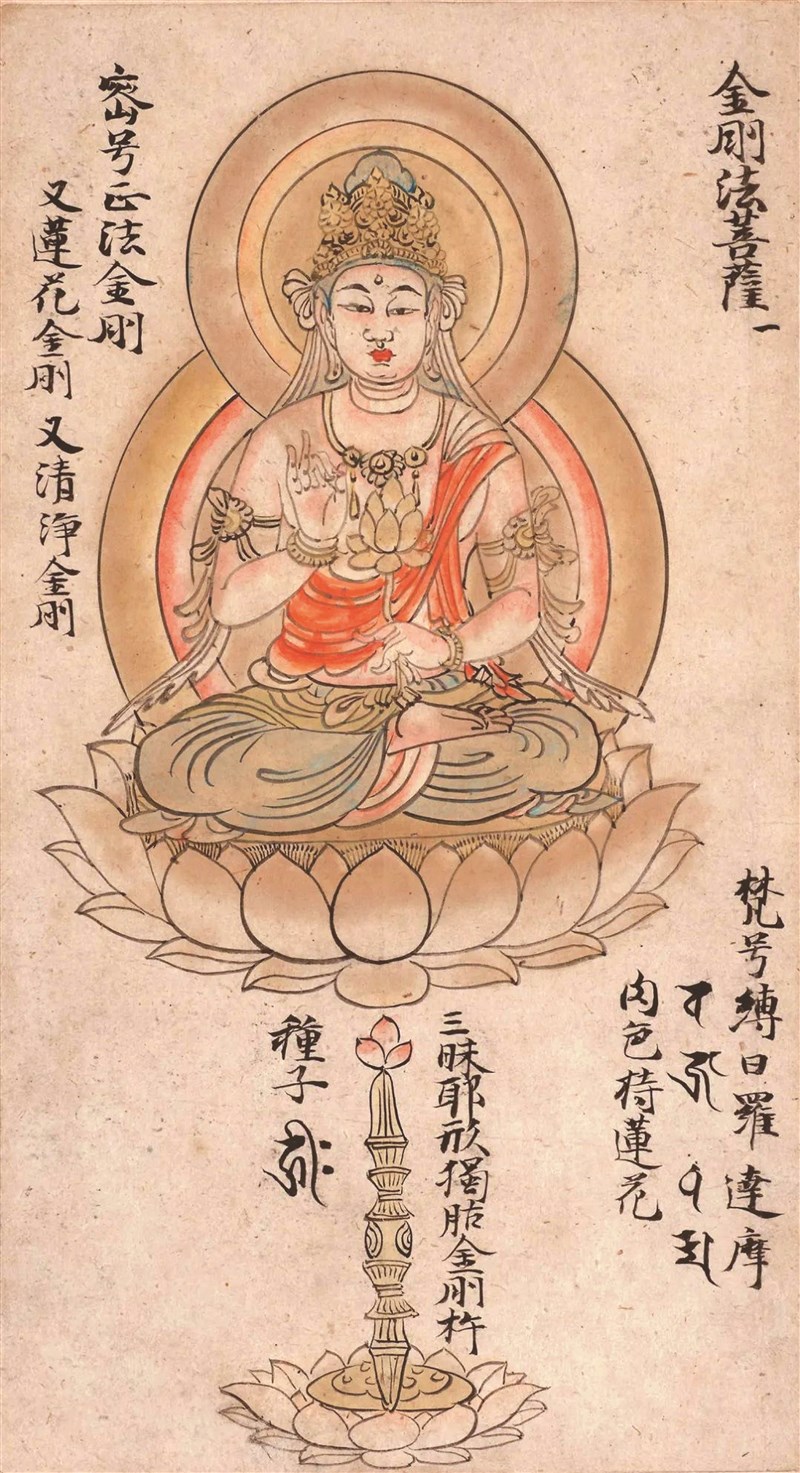 金剛法菩薩一
梵号縛日羅達摩
肉色持蓮花
三昧耶形獨胋金剛杵
種子
密号正法金剛
又蓮花金剛 又清浄金剛